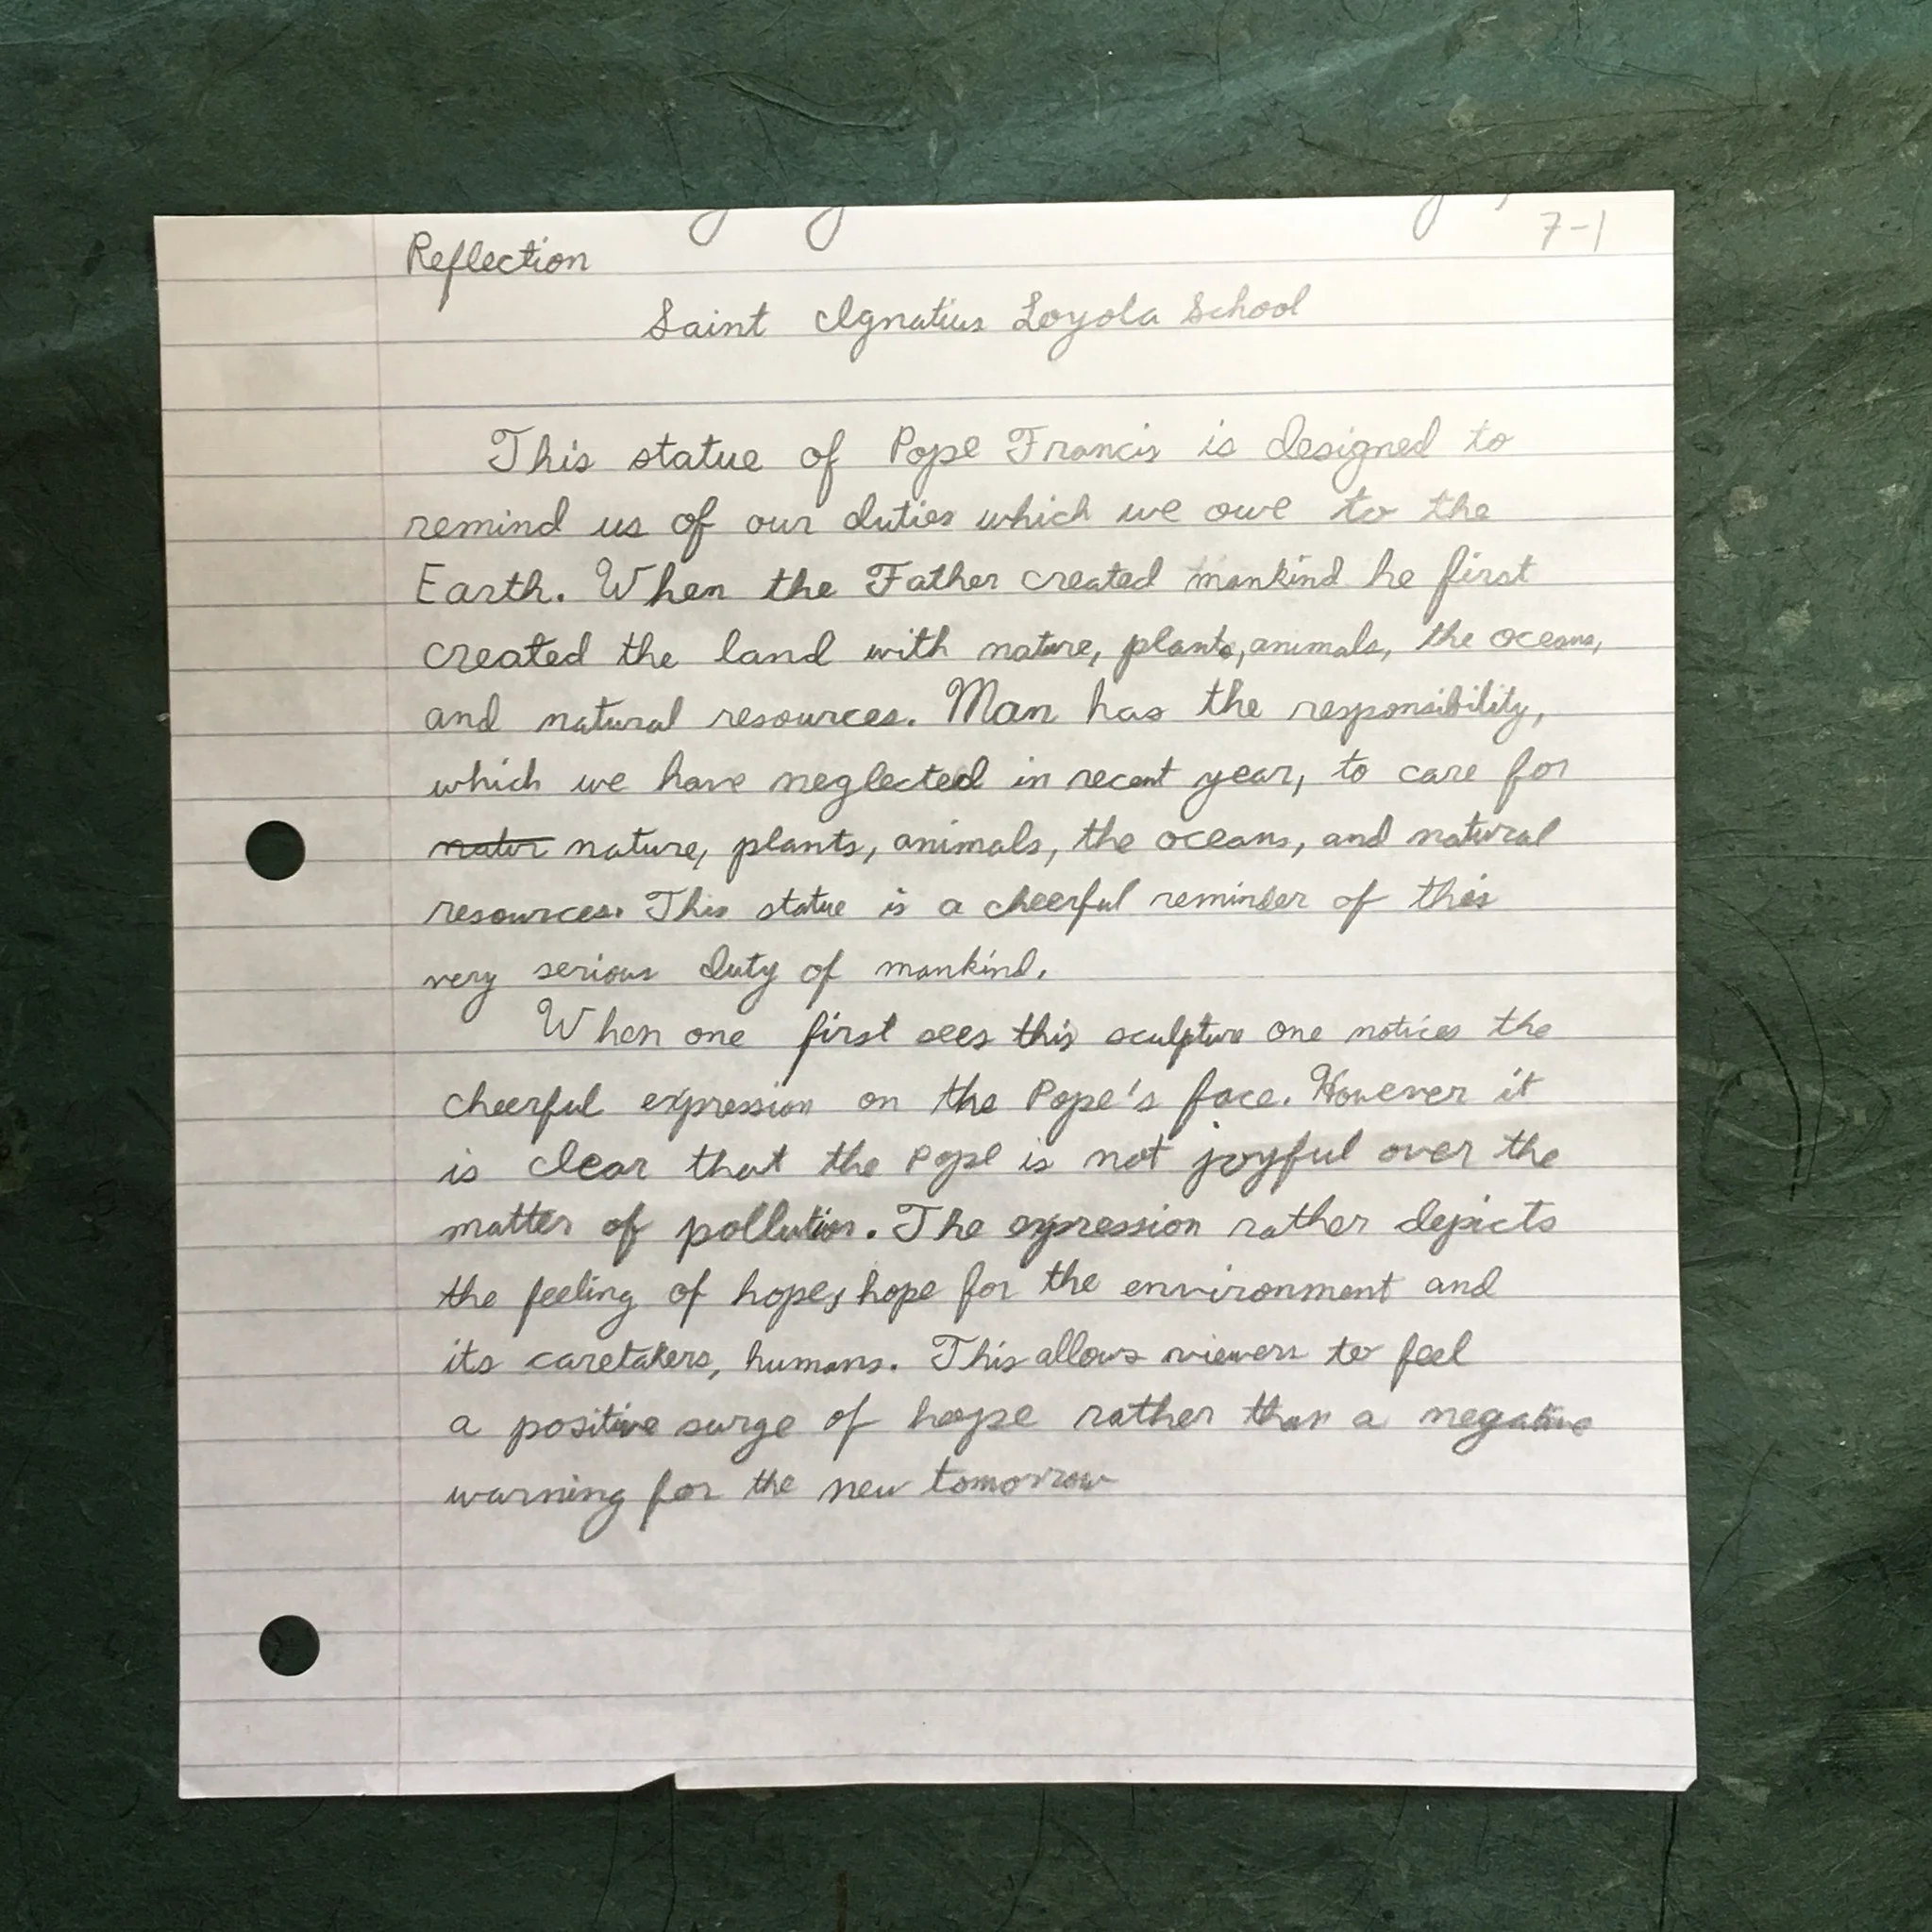 7-1
Reflection
Saint Ignatius Loyola School
This statue of Pope Francis is designed to
remind us of our duties which we owe to the
Earth. When the Father created mankind he first
created the land with nature, plants, animals, the oceans,
and natural resources. Man has the responsibility,
which we have neglected in recent year, to care for
natur nature, plants, animals, the oceans, and natural
resources. This statue is a cheerful reminder of this
very serious duty of mankind.
When one first sees this sculpture one notices the
cheerful expression on the Pope's face. However it
is clear that the Pope is not joyful over the
matter of pollution. The expression rather depicts
the feeling of hope, hope for the environment and
its caretakers, humans. This allows viewers to feel
a positive surge of hope rather than a negative
warning for the new tomorrow